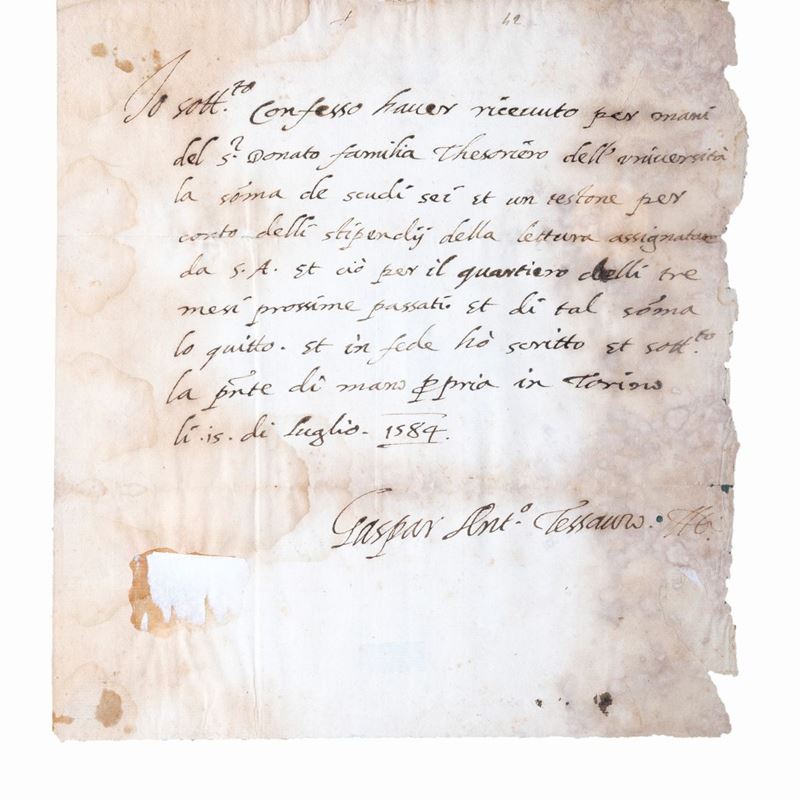 42
Io sott.to Confesso hauer riceuuto per mani
del s.r Donato familia Thesoriero dell' vniuersità
la sõma de scudi sei et un testone per
conto delli stipendij della lettura assignatame
da S.A. et ciò per il quartiero delli tre
mesi prossime passati et di tal sõma
lo quitto. et in fede hò scritto et sott.to
la pñte di mano ꝓpria in Torino
li .15. di Luglio. 1584.
Gaspar Ant.o Tessauro.